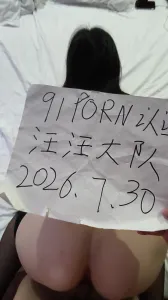 91PORN认
汪汪大队
2026.7.30